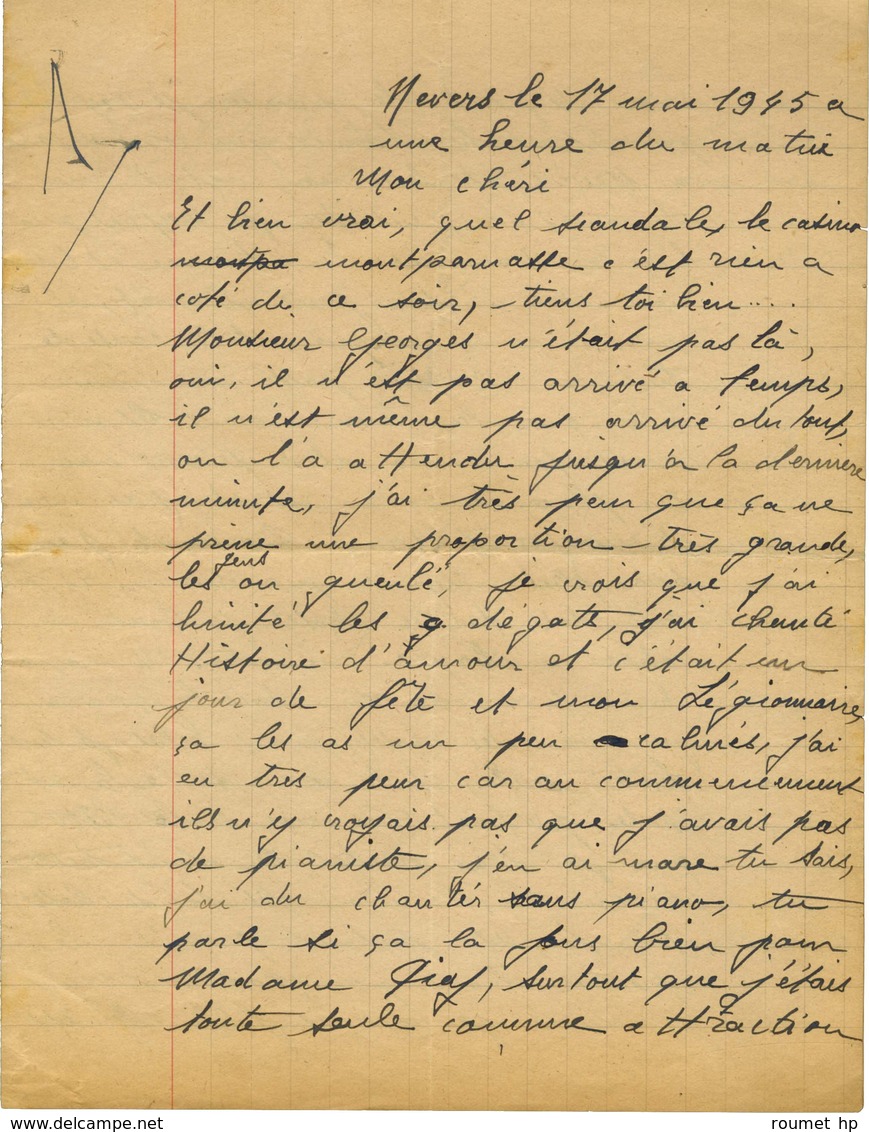 A 7
Nevers le 17 mai 1945 a
une heure du matin
Mon chéri
Et bien vrai, quel scandale, le casino
montpa montparnasse c'est rien a
coté de ce soir, tiens toi bien....
Monsieur Georges n'était pas là,
oui, il n'est pas arrivé a temps,
il n'est même pas arrivé du tout,
on l'a attendu jusqu'à la dernière
minute, j'ai très peur que ça ne
prène une proportion très grande,
les gens on gueulé, je crois que j'ai
limité les dégats, j'ai chanté
Histoire d'amour et c'était un
jour de fête et mon Légionnaire,
ça les as un peu calmés, j'ai
eu très peur car au commencement
ils n'y croyais pas que j'avais pas
de pianiste, j'en ai mare tu sais,
j'ai du chanter sans piano, tu
parle si ça la fous bien pour
Madame Piaf, surtout que j'étais
toute seule comme attraction
roumet hp